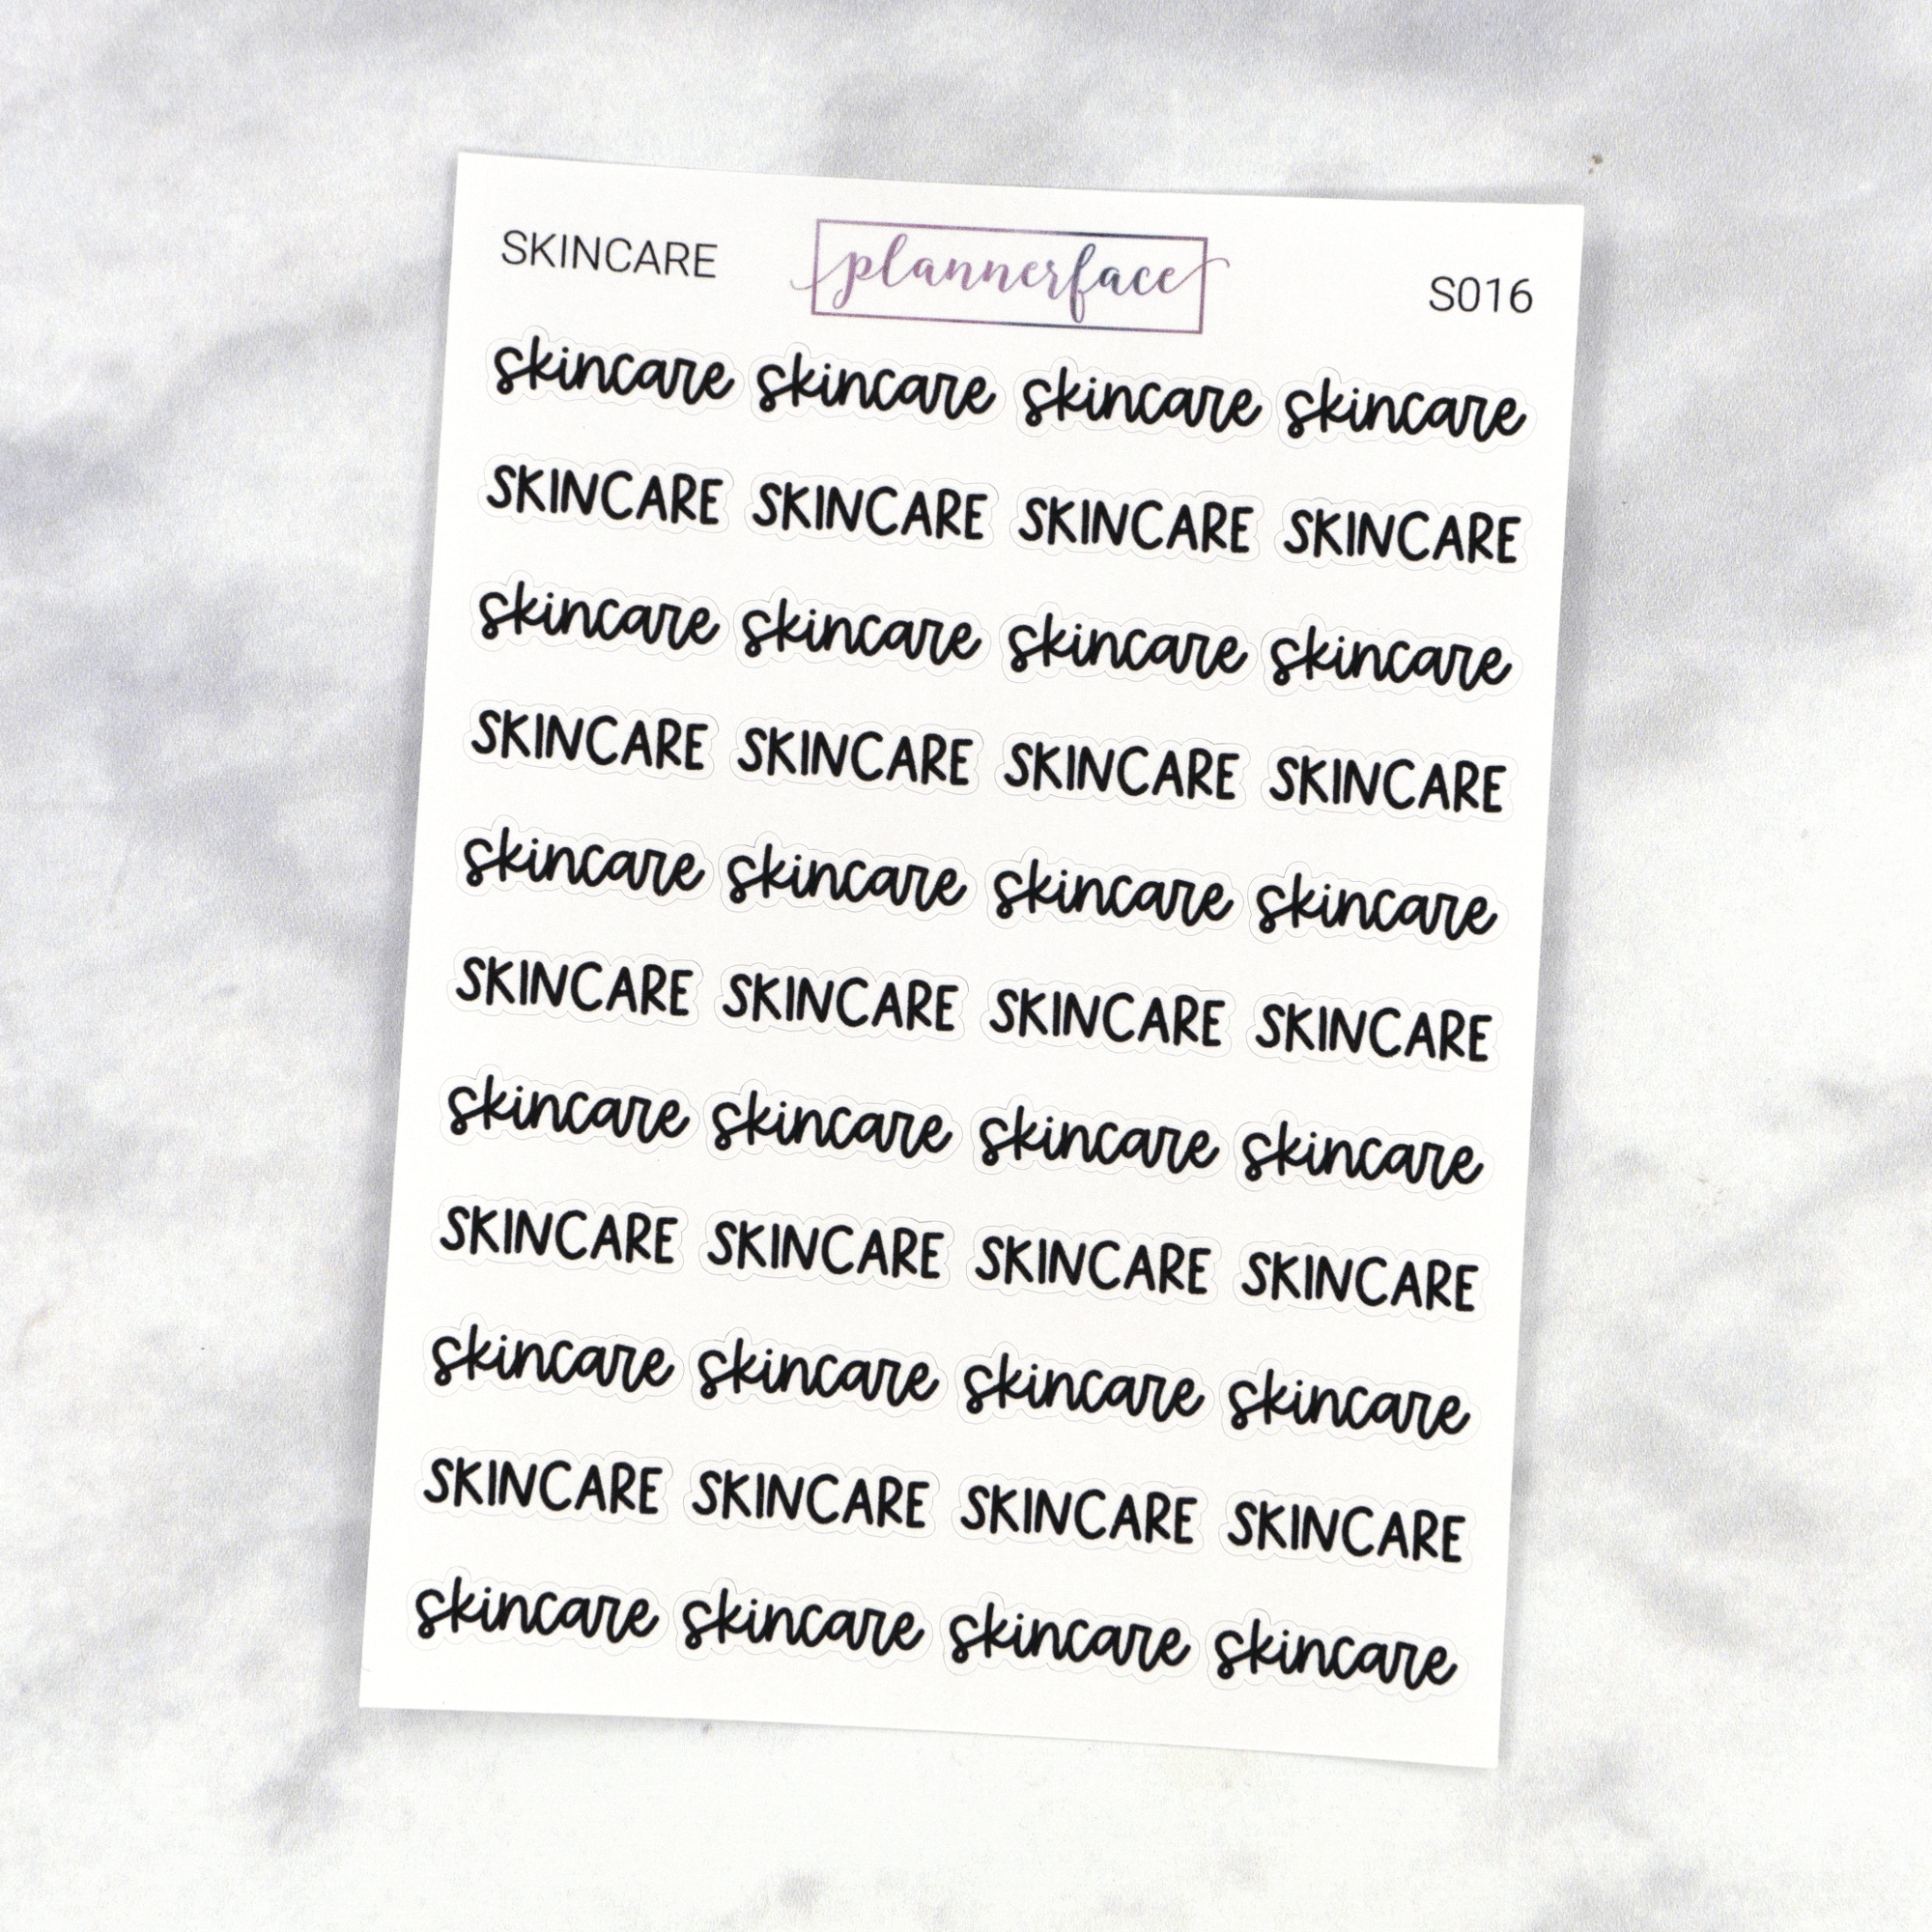 SKINCARE plannerface S016
skincare skincare skincare skincare
SKINCARE SKINCARE SKINCARE SKINCARE
skincare skincare skincare skincare
SKINCARE SKINCARE SKINCARE SKINCARE
skincare skincare skincare skincare
SKINCARE SKINCARE SKINCARE SKINCARE
skincare skincare skincare skincare
SKINCARE SKINCARE SKINCARE SKINCARE
skincare skincare skincare skincare
SKINCARE SKINCARE SKINCARE SKINCARE
skincare skincare skincare skincare